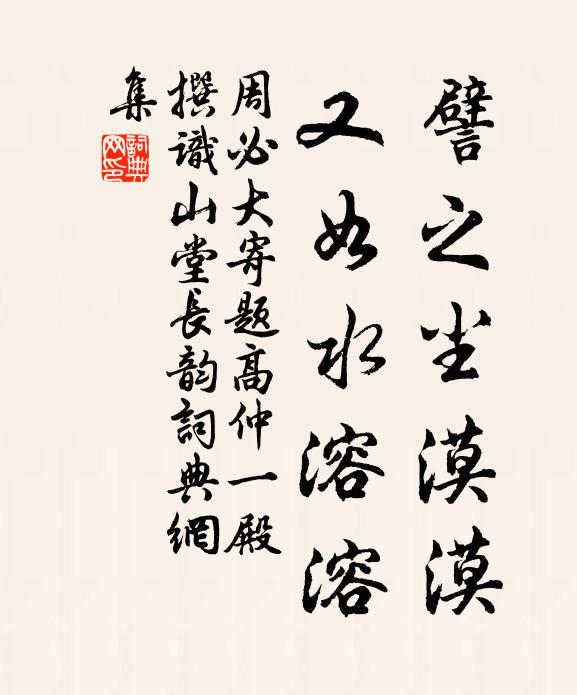 譬之尘漠漠
又如水溶溶
周必大寄题高仲一殿
撰識山堂長韵詞典網
集
詞典
网印